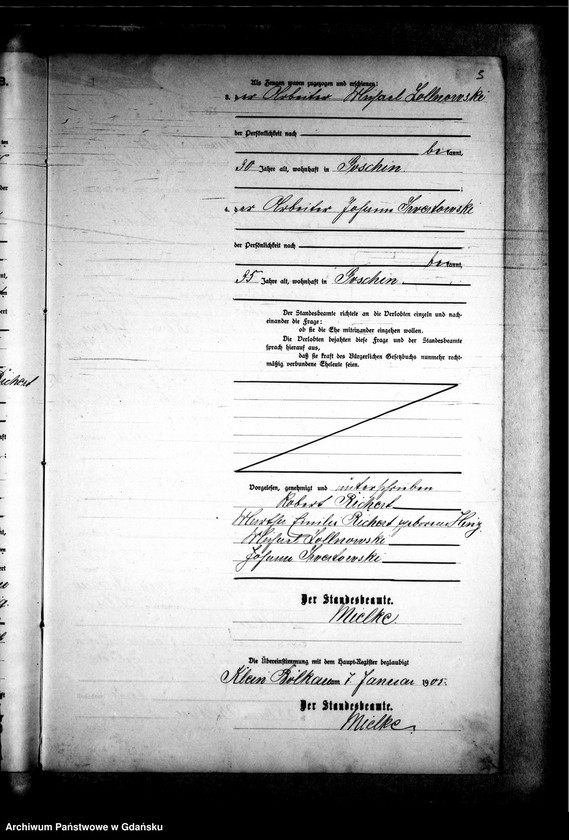 3
Als Zeugen waren zugezogen und erschienen:
3. der Arbeiter Michael Lollnowski
der Persönlichkeit nach
be kannt,
30 Jahre alt, wohnhaft in Goschin.
;
4. der Arbeiter Johann
der Persönlichkeit nach
be kannt,
35 Jahre alt, wohnhaft in Goschin.
Der Standesbeamte richtete an die Verlobten einzeln und nach-
einander die Frage:
ob sie die Ehe miteinander eingehen wollen.
Die Verlobten bejahten diese Frage und der Standesbeamte
sprach hierauf aus,
daß sie kraft des Bürgerlichen Gesetzbuchs nunmehr recht-
mäßig verbundene Eheleute seien.
Vorgelesen, genehmigt und unterschrieben
Robert Richert
Emilie Richert geborene
Michael Lollnowski
Johann
Der Standesbeamte.
Mielke.
Die Übereinstimmung mit dem Haupt-Register beglaubigt
Klein Bölkau am 7. Januar 1908.
Der Standesbeamte.
Mielke.
Richert
Archiwum Państwowe w Gdańsku